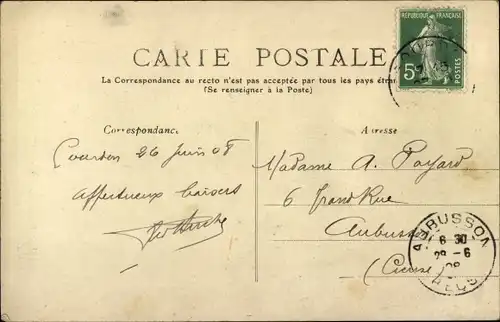 CARTE POSTALE
La Correspondance au recto n'est pas acceptée par tous les pays étran
(Se renseigner à la Poste)
REPUBLIQUE FRANÇAISE
5c
POSTES
Correspondance
Adresse
Gourdon 26 Juin 08
Affectueux baisers
Madame A. Fayard
6 Grand Rue
Aubusson
(Creuse)
AUBUSSON
6 30
28 - 6
08